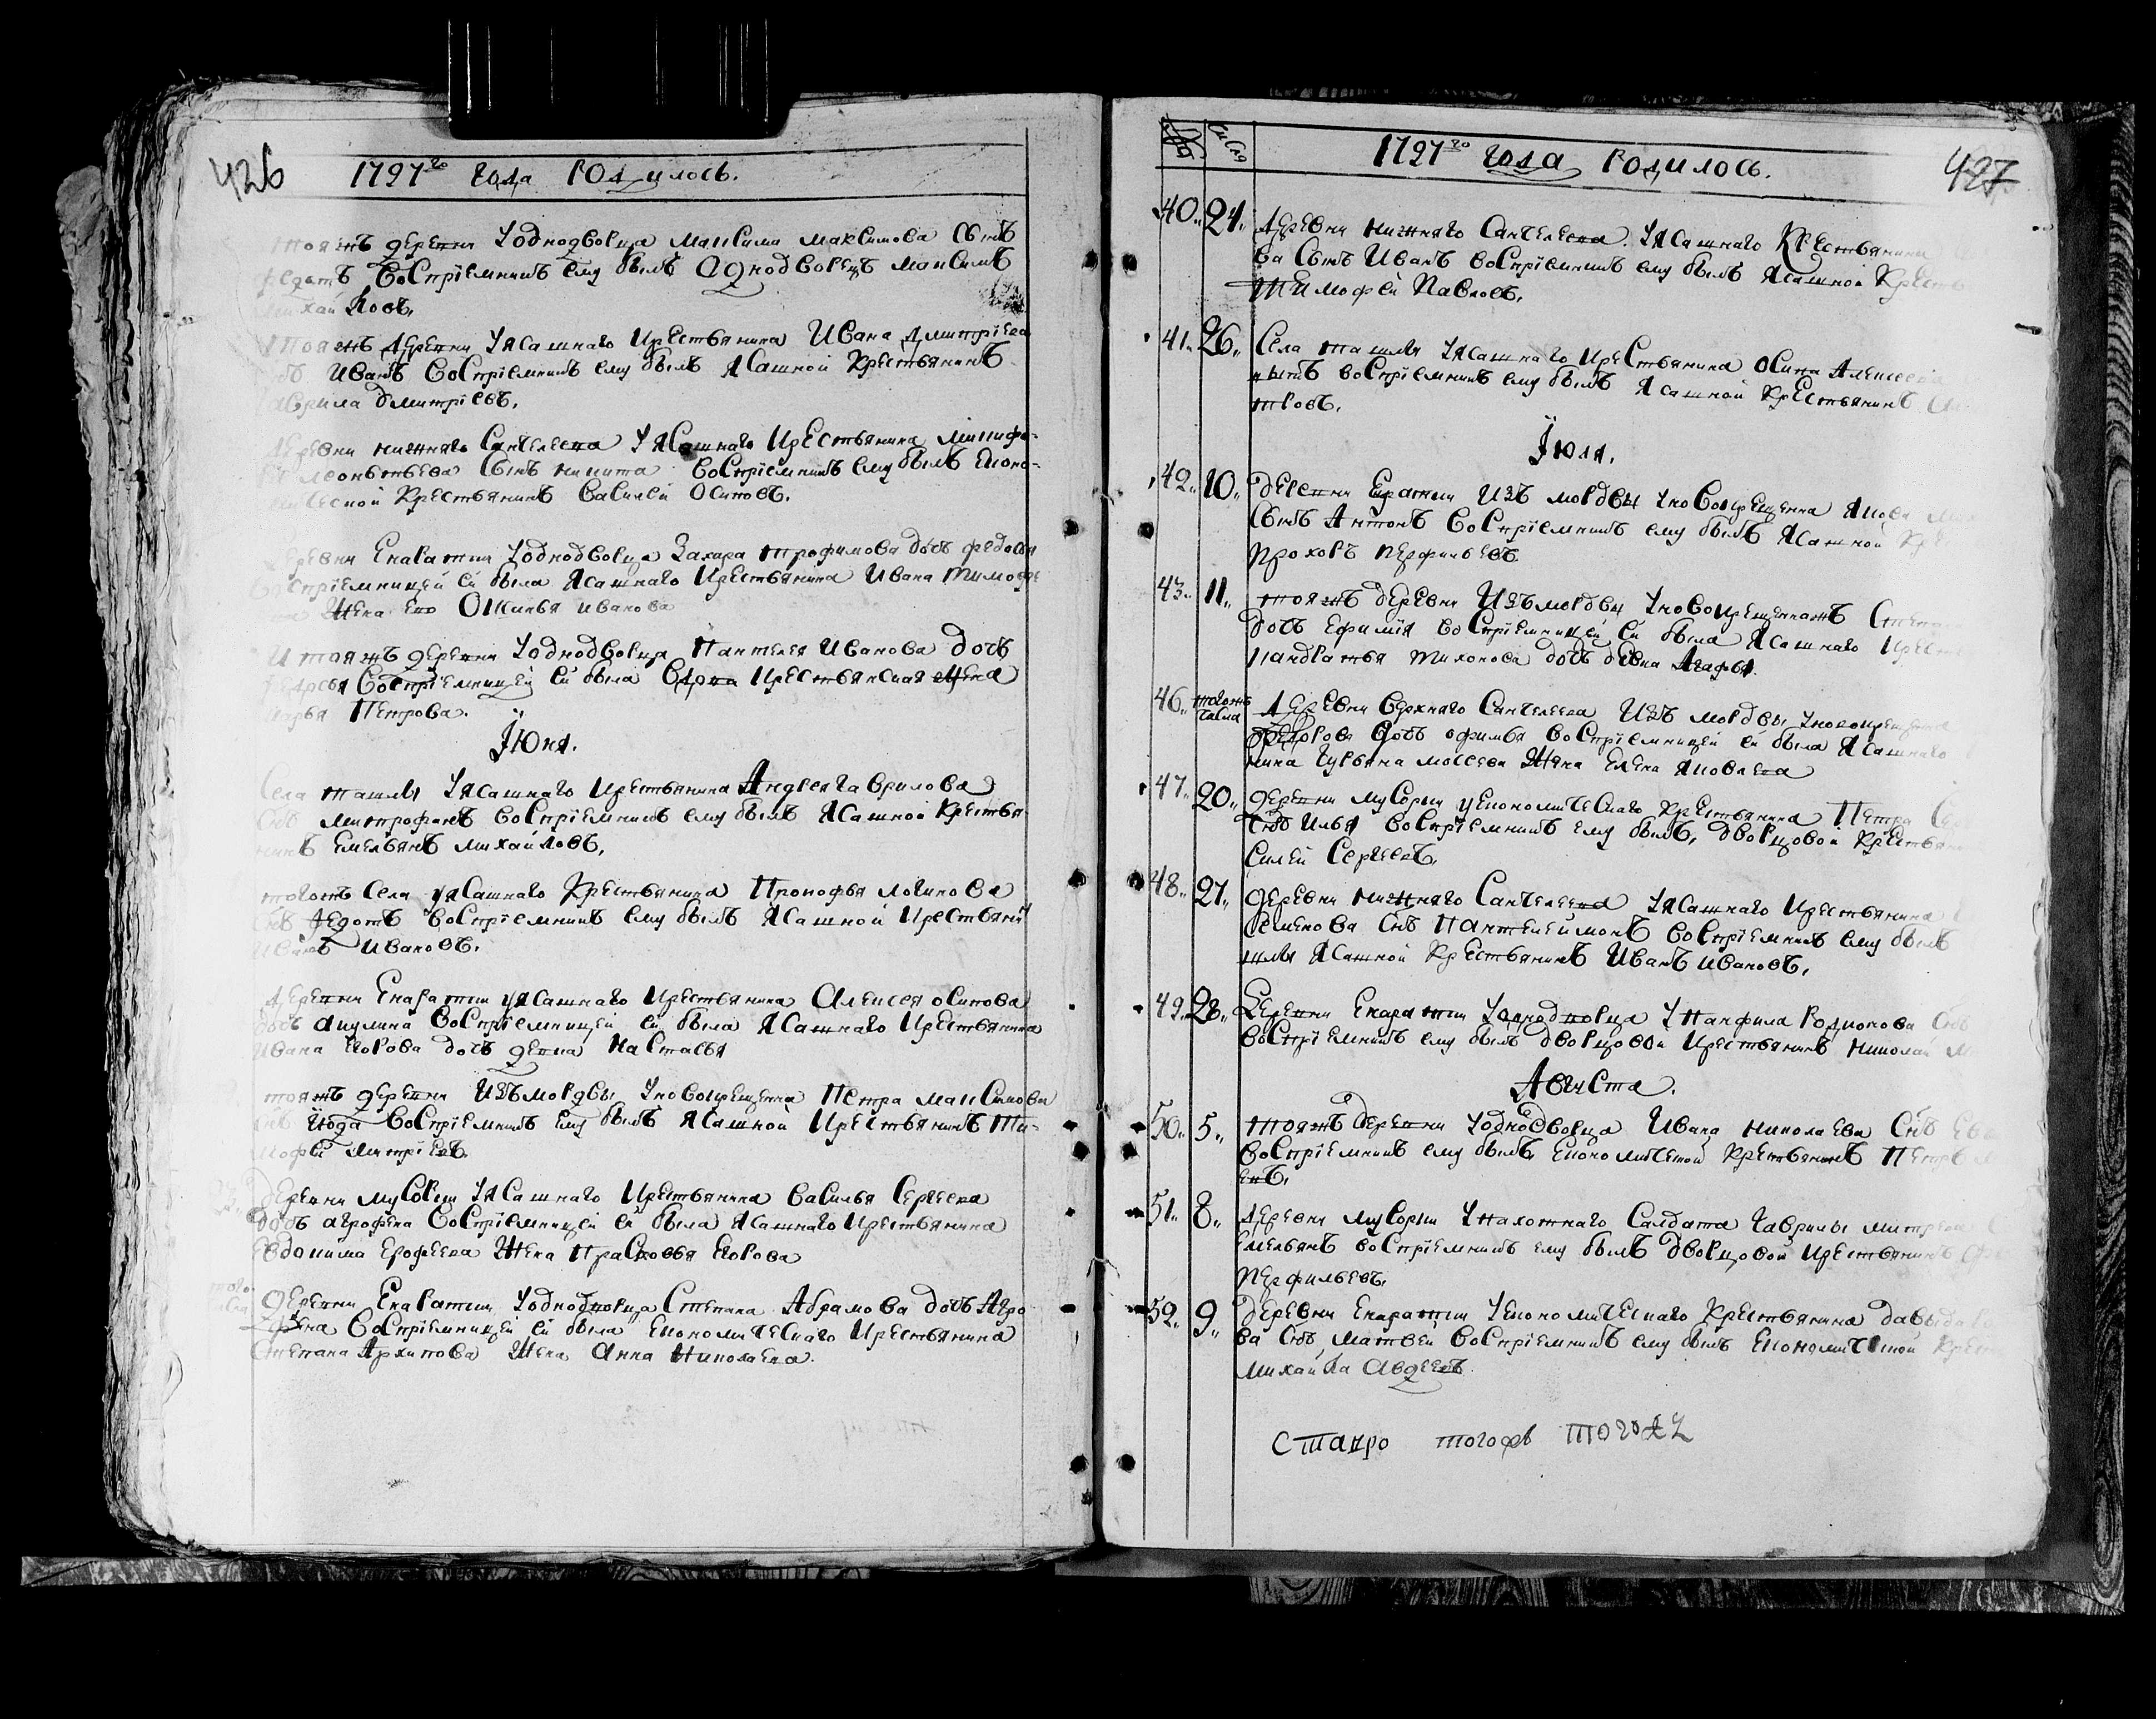 426
1797го года родилось.
тояжъ деревни Уоднодворца Максима Максимова сынъ
Федотъ восприемникъ ему былъ однодворецъ Максимъ
Михайловъ.
тояжъ деревни Уясашнаго крестьянина Ивана Дмитриева
Иванъ восприемникъ ему былъ ясашной крестьянинъ
Гаврила Дмитриевъ.
деревни нижняго Санчелеева Уясашнаго крестьянина
Леонтьева сынъ Никита восприемникъ ему былъ Еконо-
мической крестьянинъ Василей Осиповъ.
деревни Екаратки Уоднодворца Захара Трофимова дочь Федосья
восприемницей ей была ясашнаго крестьянина Ивана Тимофее
ва жена его Огилья Иванова
И тояжъ деревни Уоднодворца Пантелея Иванова дочь
восприемницей ей была крестьянская жена
Марья Петрова.
Июня.
Села Ташлы Уясашнаго крестьянина Андрея Гаврилова
снъ Митрофанъ восприемникъ ему былъ ясашной крестья
нинъ Емельянъ Михайловъ.
тогожъ села уясашнаго крестьянина Прокофья Логинова
снъ Федотъ восприемникъ ему былъ ясашной крестьяни
Иванъ Ивановъ.
деревни Екаратки уясашнаго крестьянина Алексея Осипова
дочь Акулина восприемницей ей была ясашнаго крестьянина
Ивана Егорова дочь девка Настасья
тояжъ деревни Изъ мордвы Уновокрещенна Петра Максимова
снъ Июда восприемникъ ему былъ ясашной крестьянинъ Ти-
мофей Дмитриевъ.
деревни Мусорки Уясашнаго крестьянина Василья Сергеева
дочь Агрофена восприемницей ей была ясашнаго крестьянина
Евдокима Ерофеева жена Прасковья Егорова
деревни Екаратки Уоднодворца Степана Абрамова дочь Агро
фена восприемницей ей была Економическаго крестьянина
Степана Архипова жена Анна Николаева.
числа
1797го года родилось.
427
40. 24. деревни нижняго Санчелеева. Уясашнаго крестьянина
ва сынъ Иванъ восприемникъ ему былъ ясашной крестья
Тимофей Павловъ.
41. 26. Села Ташлы Уясашнаго крестьянина Осипа Алексеева
восприемникъ ему былъ ясашной крестьянинъ
тровъ.
Июля.
42. 10. деревни Екаратки Изъ мордвы Уновокрещенна Якова
сынъ Антонъ восприемникъ ему былъ ясашной кре
Прохоръ Перфильевъ
43. 11. тояжъ деревни Изъ мордвы Уновокрещеннажъ
дочь Ефимия восприемницей ей была ясашнаго крест
Кандратья Тихонова дочь девка Агафья.
46. тогожъ числа деревни верхняго Санчелеева Изъ мордвы Уновокрещенна
дочь Офимья восприемницей ей была ясашнаго
нина Гурьяна Моисеева жена Елена Яковлева
47. 20. деревни Мусорки уекономическаго крестьянина Петра
снъ Илья восприемникъ ему былъ, дворцовой крестьян
силей Сергеевъ.
48. 27. деревни нижняго Санчелеева Уясашнаго крестьянина
Семенова снъ Пантелеймонъ восприемникъ ему былъ
шлы ясашной крестьянинъ Иванъ Ивановъ.
49. 28. деревни Екаратки Уоднодворца УПанфила Родионова снъ
восприемникъ ему былъ дворцовой крестьянинъ Николай
Августа.
50. 5. тояжъ деревни Уоднодворца Ивана Николаева снъ
восприемникъ ему былъ, Економической крестьянинъ Петръ
евъ.
51. 8. деревни Мусорки Унахотнаго Салдата Гаврилы Митрева
Емельянъ восприемникъ ему былъ дворцовой крестьянинъ
Перфильевъ.
52. 9. деревни Екаратки Уекономическаго крестьянина Давыда
ва снъ, Матвей восприемникъ ему былъ Економической крест
Михайла Авдеевъ